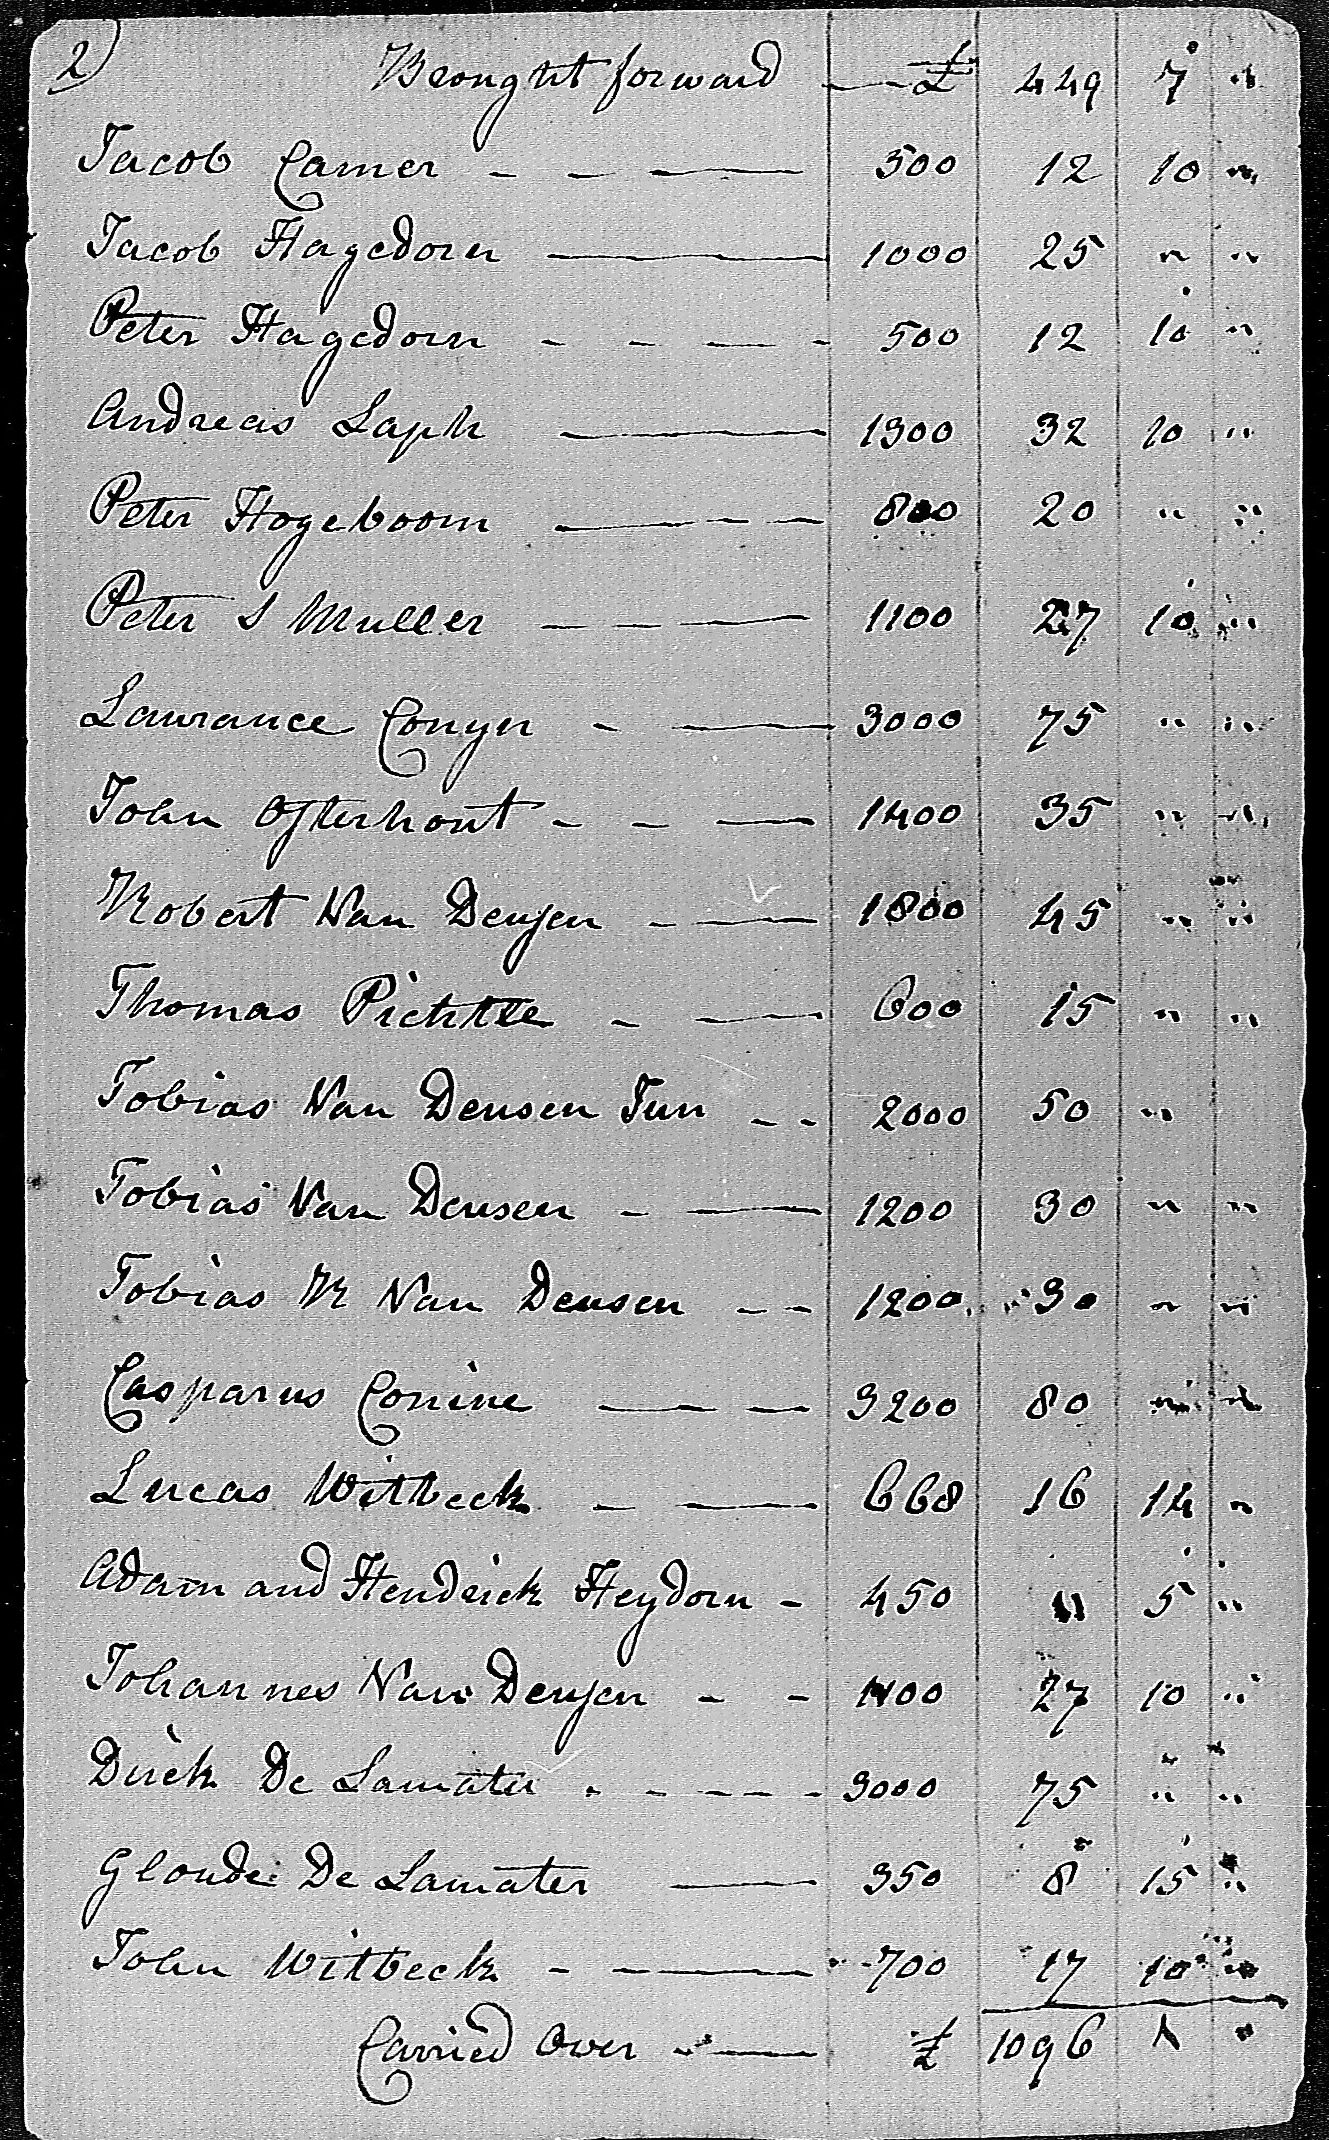 2) Brought forward — £ 449 7 "
Jacob Camer - - — 500 12 10 "
Jacob Hagedorn — 1000 25 " "
Peter Hagedorn - - - - 500 12 10 "
Andreas Laph — 1300 32 10 "
Peter Hogeboom — - - 800 20 " "
Peter S Muller - - - — 1100 27 10 "
Lawrance Conyn - — 3000 75 " "
John Osterhout - - — 1400 35 " "
Robert Van Deusen - — 1800 45 " "
Thomas Pickttee - — 600 15 " "
Tobias Van Deusen Jun - - 2000 50 "
Tobias Van Deusen - — 1200 30 " "
Tobias R Van Deusen - - 1200 30 " "
Casparus Conine — - - 3200 80 " "
Lucas Witbeck - — 668 16 14 "
Adam and Hendrick Heydorn - 450 11 5 "
Johannes Van Deusen - - 1100 27 10 "
Dirck De Lamater - - - - 3000 75 " "
Gloude De Lamater — 350 8 15 "
John Witbeck - — 700 17 10 "
Carried Over — £ 1096 1 "